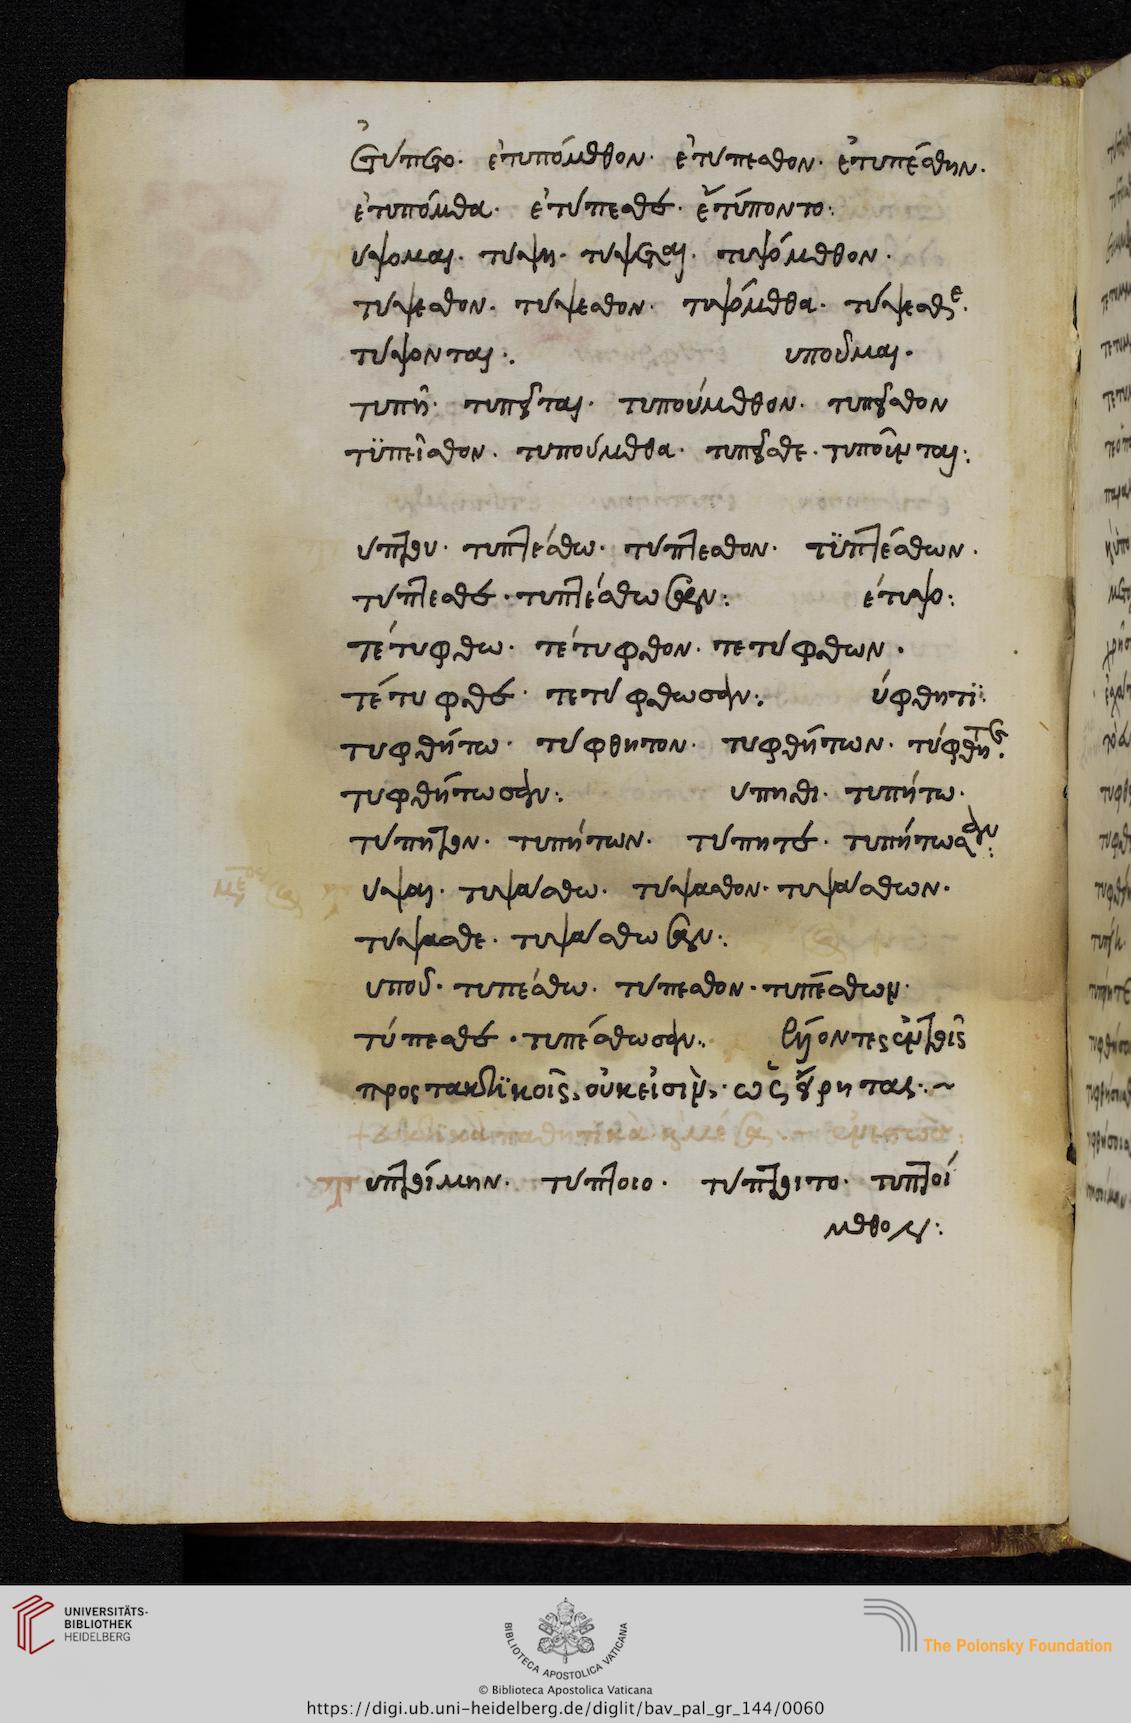 ἐτύπετο· ἐτυπόμεθον· ἐτύπεσθον· ἐτυπέσθην·
ἐτυπόμεθα· ἐτύπεσθε· ἐτύποντο:
υψομαι· τυψη· τυψεται· τυψόμεθον·
τύψεσθον· τύψεσθον· τυψόμεθα· τύψεσθε·
τύψονται:· υπουμαι·
τυπῆ· τυπεῖται· τυπούμεθον· τυπεῖσθον
τϋπεῖσθον· τυπούμεθα· τυπεῖσθε· τυποῦνται:
υπτου· τυπτέσθω· τύπτεσθον· τϋπτέσθων·
τύπτεσθε· τυπτέσθωσαν: έτυψο:
τέτυφθω· τέτυφθον· τετύφθων·
τέτυφθε· τετύφθωσαν: ύφθητϊ:
τυφθήτω· τύφθητον· τυφθήτων· τύφθητε·
τυφθήτωσαν: υπηθι· τυπήτω·
τύπητον· τυπήτων· τύπητε· τυπήτωσαν:
υψαι· τυψάσθω· τύψασθον· τυψάσθων·
τύψασθε· τυψάσθωσαν:
υπου· τυπέσθω· τύπεσθον· τυπέσθων·
τύπεσθε· τυπέσθωσαν: λήοντες ἐν τοῖς
προςτακτϊκοῖς, οὐκ εἰσὶν· ὡς εἴρηται·~
υπτοίμην· τύπτοιο· τύπτοιτο· τυπτοί
μεθον:
UNIVERSITÄTS-
BIBLIOTHEK
HEIDELBERG
BIBLIOTECA APOSTOLICA VATICANA
The Polonsky Foundation
© Biblioteca Apostolica Vaticana
https://digi.ub.uni-heidelberg.de/diglit/bav_pal_gr_144/0060